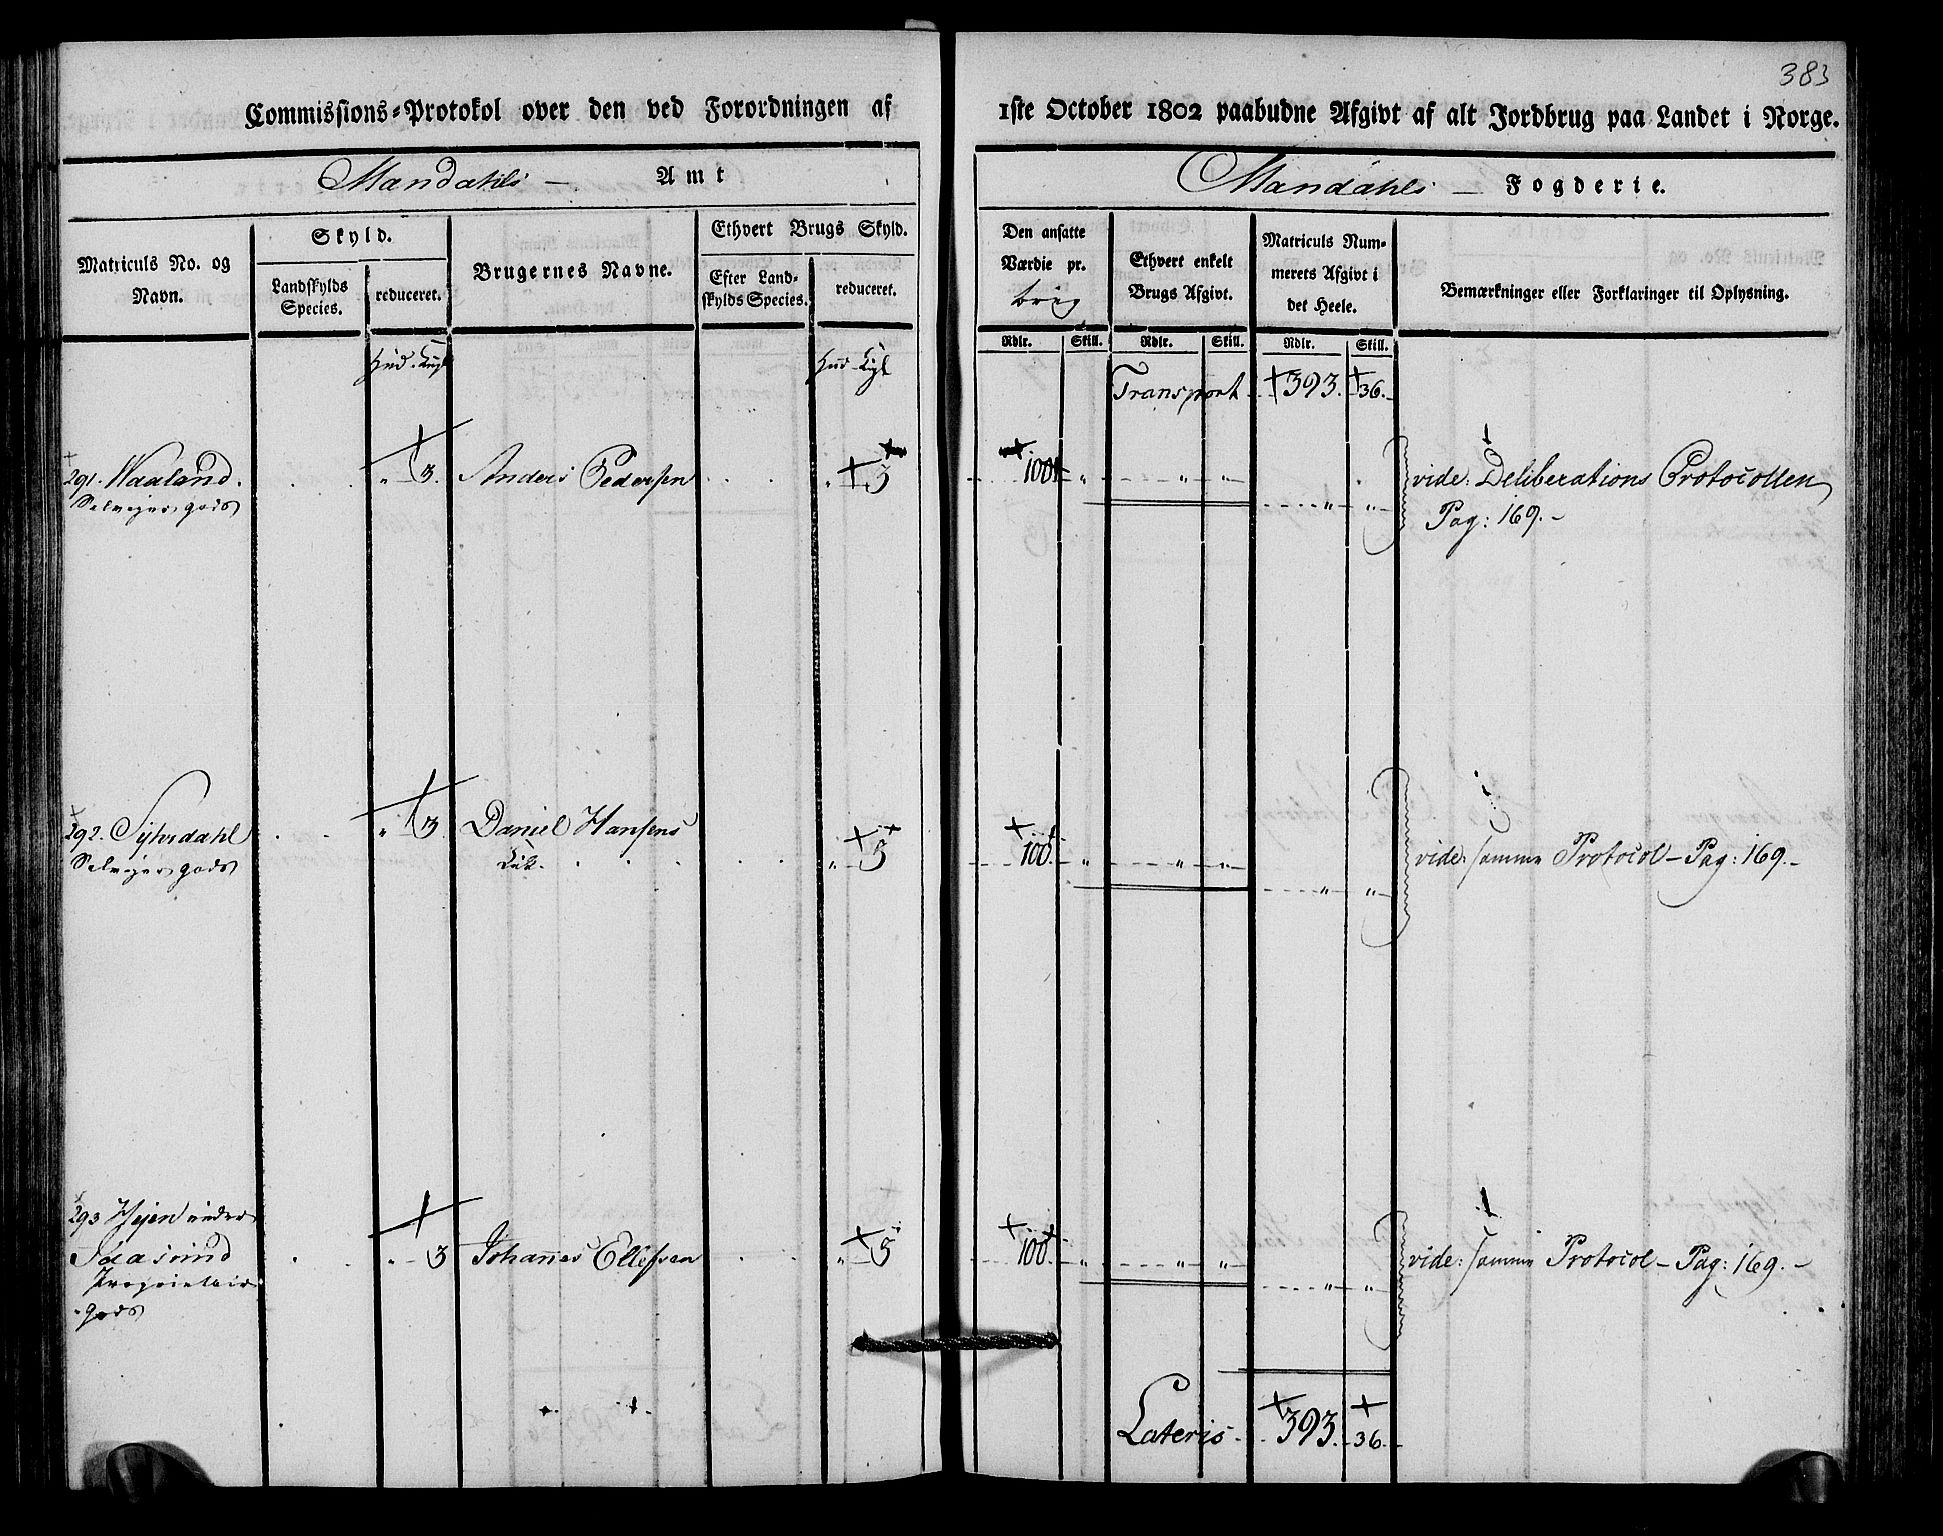 383
Commissions-Protokol over den ved Forordningen af 1ste October 1802 paabudne Afgivt af alt Jordbrug paa Landet i Norge.
Mandahls — Amt
Mandahls — Fogderie.
Matriculs No. og Navn.
Skyld.
Landskylds Species.
reduceret.
Brugernes Navne.
Ethvert Brugs Skyld.
Efter Landskylds Species.
reduceret.
Den ansatte Værdie pr.
Ethvert enkelt Brugs Afgivt.
Matriculs Nummerets Afgivt i det Heele.
Bemærkninger eller Forklaringer til Oplysning.
Rdlr. Skill. Rdlr. Skill. Rdlr. Skill.
Transport 393. 36.
291. Waaland. " 3. Anders Pedersen " 3 100 " " " vide: Deliberations Protocollen
Selvejer gods " " Pag: 169.
292. " 3. Daniel Hansens
Selvejer gods " 3 100. " " " vide: samme Protocol – Pag: 169.
" "
293 Hejen under
" 3 Johannes Ellefsen " 3 100. " " " vide: samme Protocol – Pag: 169.
Proprietair
gods " "
Lateris 393. 36.